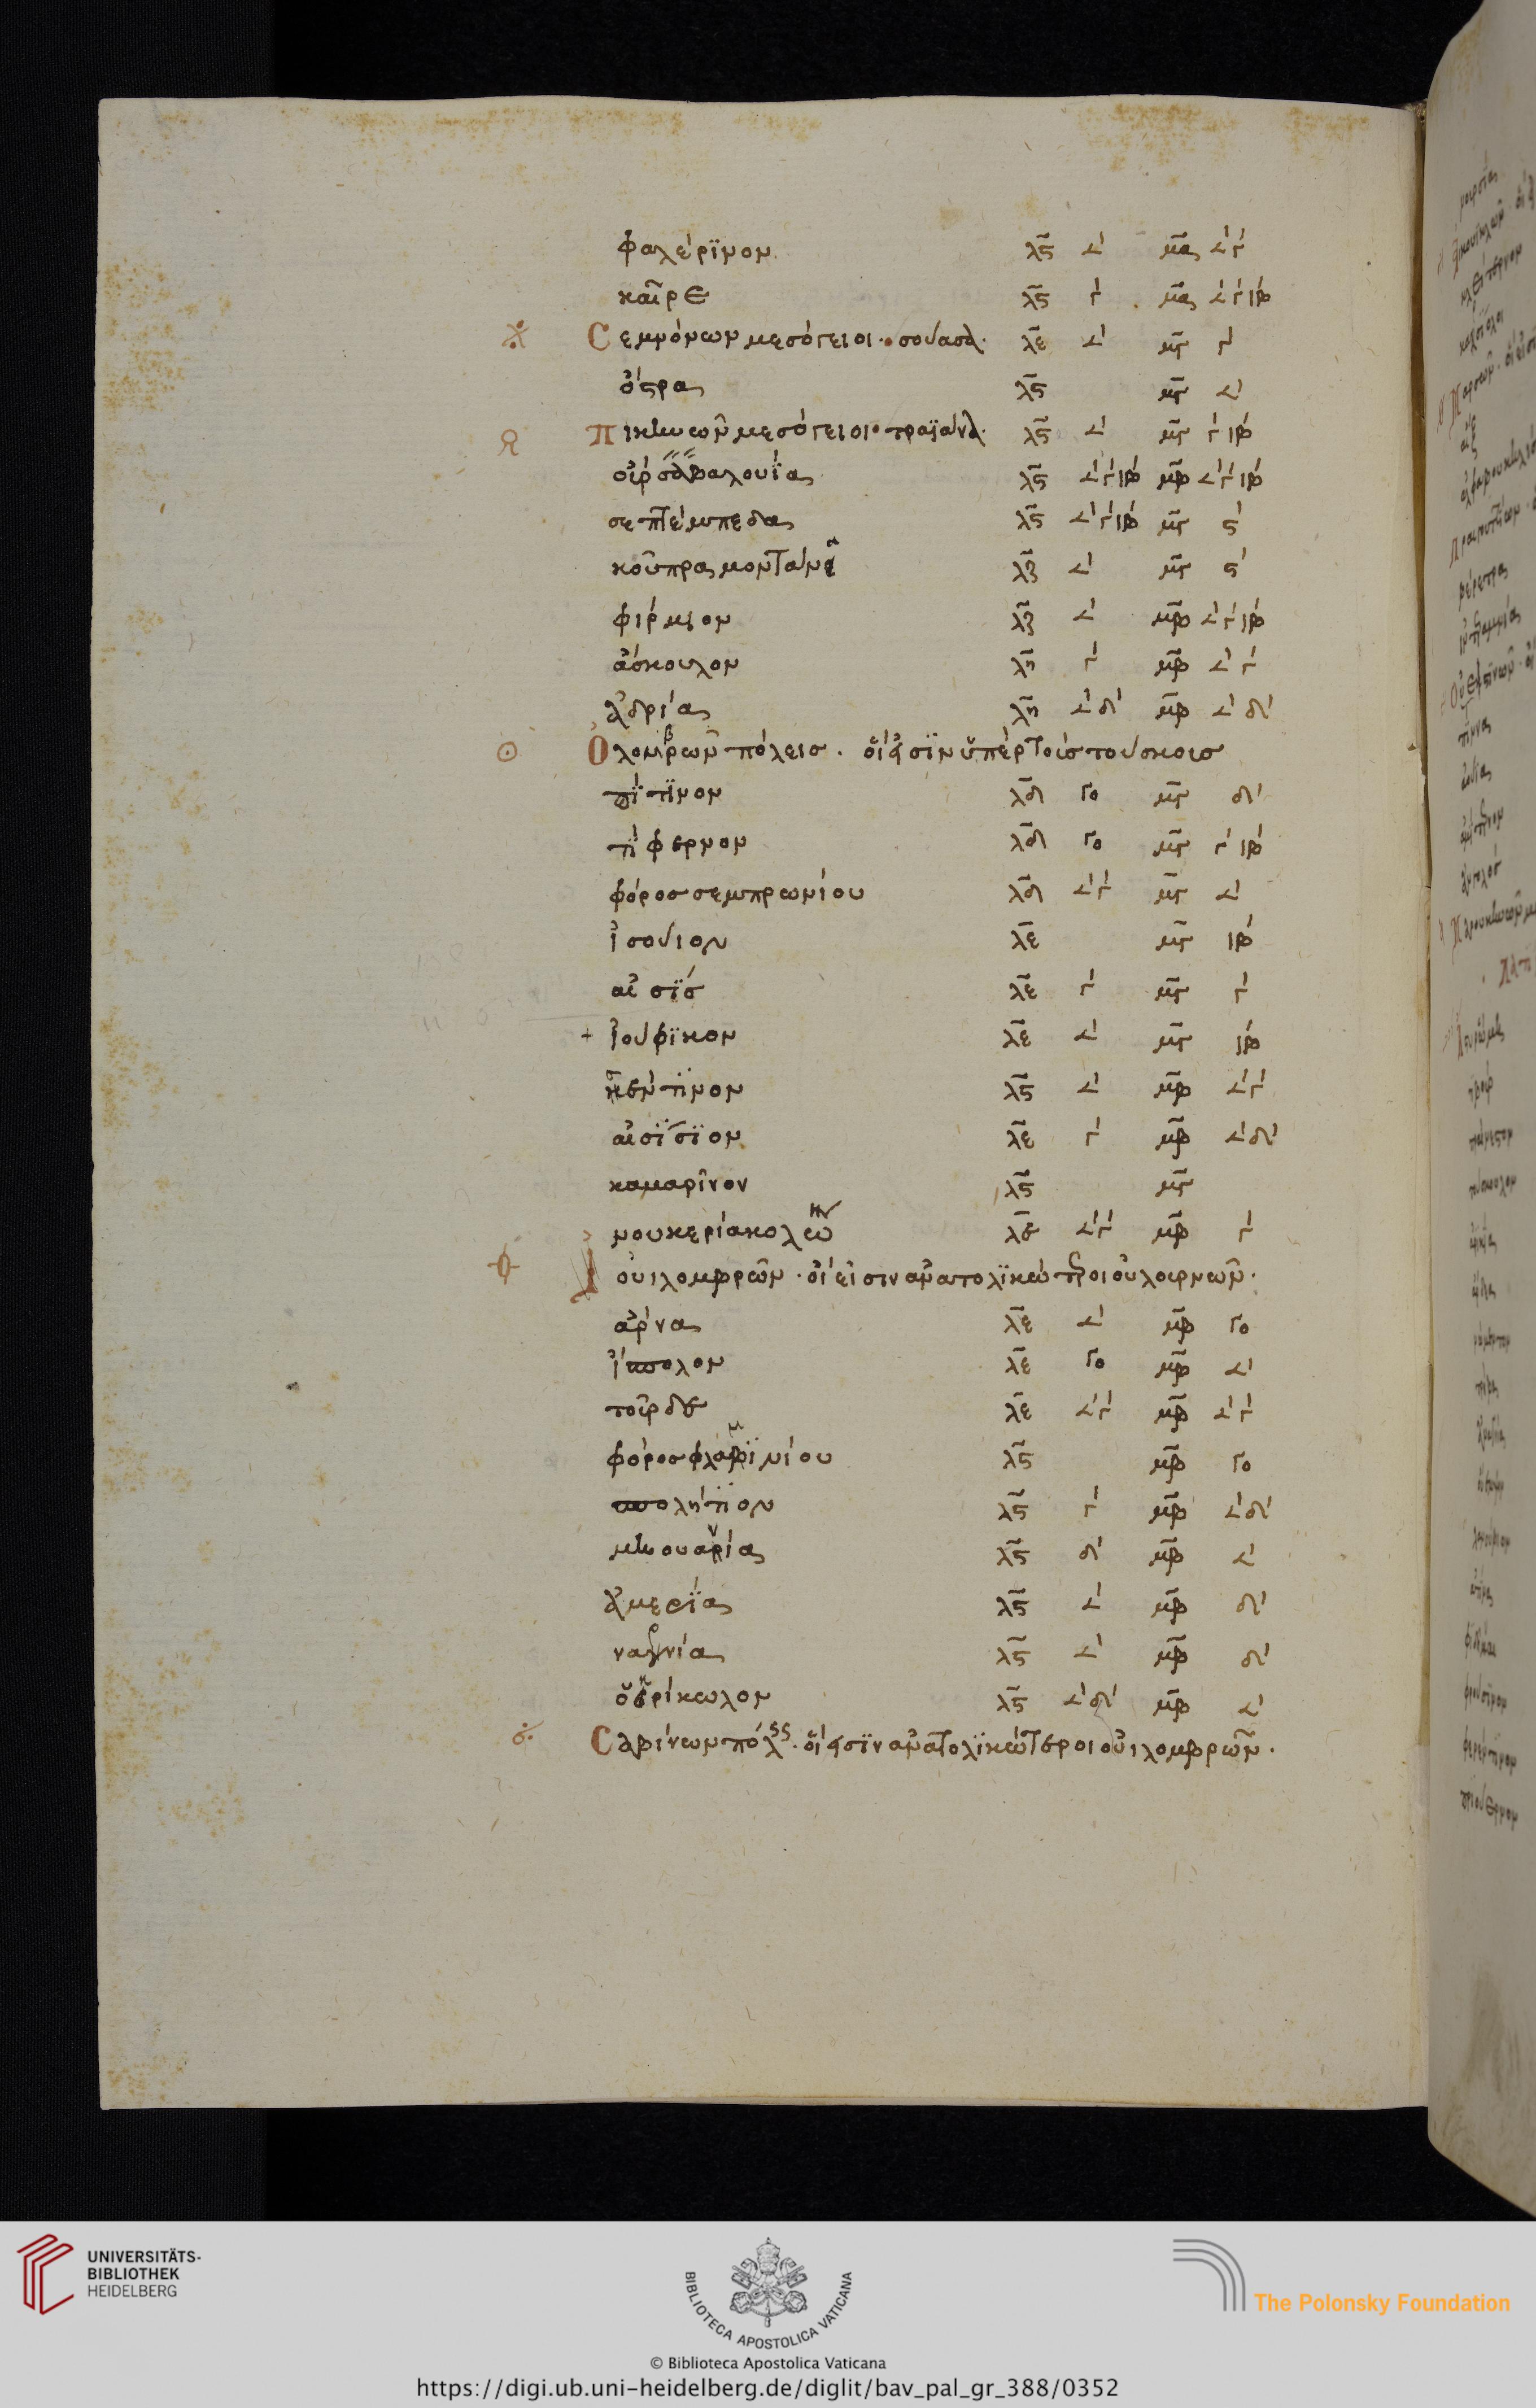 φαλέριννον λϛ 𐅵 μα 𐅵γ
καῖρε λϛ γ μα 𐅵γιβ
Σεμνόνων μεσόγειοι· σούασα λε 𐅵 μγ γ
ὄστρα λϛ μγ 𐅵
πικηνῶν μεσόγειοι· τραϊάνα λϛ 𐅵 μγ γιβ
οὐρσαβαλουΐα λϛ 𐅵γιβ μβ 𐅵γιβ
σεπτέμπεδα λϛ 𐅵γιβ μγ ϛ
κούπρα μοντάνα λζ 𐅵 μγ ϛ
φίρμιον λζ 𐅵 μβ 𐅵γιβ
ἄσκουλον λη γ μβ 𐅵γ
ἀδρία λη 𐅵δ μβ 𐅵δ
Ὀλομβρῶν πόλεισ· οἵ εἰσϊν ὑπὲρ τοὺσ τούσκουσ
πίτϊνον λδ γο μγ δ
τίφερνον λδ γο μγ γιβ
φόροσ σεμπρωνίου λδ 𐅵γ μγ 𐅵
ἰσούιον λε μγ ιβ
αἰσίσ λε γ μγ γ
+ ἰούφϊκον λε 𐅵 μγ ιβ
σεντϊνον λϛ 𐅵 μβ 𐅵γ
αἰσίσϊον λε γ μβ 𐅵δ
καμαρῖνον λϛ μγ
νουκερία κολων λε 𐅵γ μβ γ
ουιλομβρῶν· οἵ εἰσιν ἀνατολϊκώτεροι ὀυλομρνῶν·
ἄρνα λε 𐅵 μβ γο
ἵσπολον λε γο μβ 𐅵
τοῦδερ λε 𐅵γ μβ 𐅵γ
φόροσ φλαμϊνίου λϛ μβ γο
σπολήτϊον λϛ γ μβ 𐅵δ
μηουανία λϛ δ μβ 𐅵
ἀμερΐα λϛ 𐅵 μβ δ
ναρνία λϛ 𐅵 μβ δ
ὀκρίκωλον λϛ 𐅵δ μβ 𐅵
Σαβίνων πόλεισ· οἵ εἰσϊν ἀνατολϊκώτεροι οὐιλομβρῶν·
UNIVERSITÄTS-
BIBLIOTHEK
HEIDELBERG
BIBLIOTECA APOSTOLICA VATICANA
The Polonsky Foundation
© Biblioteca Apostolica Vaticana
https://digi.ub.uni-heidelberg.de/diglit/bav_pal_gr_388/0352